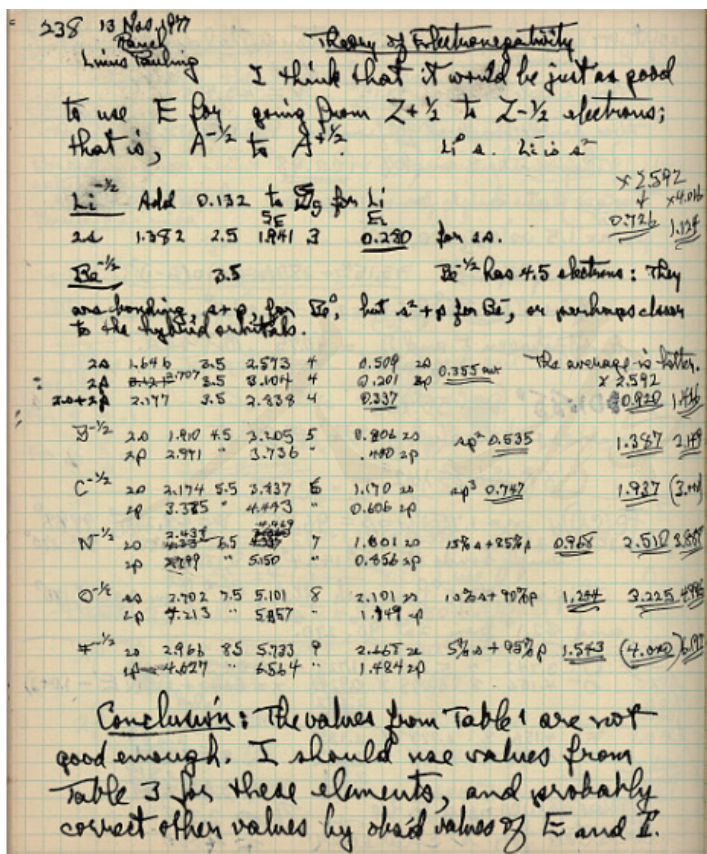 238 13 Nov. 1977
Ranch
Linus Pauling
Theory of Electronegativity
I think that it would be just as good
to use E for going from Z+½ to Z-½ electrons;
that is, A^-½ to A^+½. Li° s. Li⁻ is s²
Li^-½ Add 0.132 to for Li
× 2.592
↓ × 4.016
5E E₂
2s 1.382 2.5 1.941 3 0.280 for 2s. 0.726 1.124
Be^-½ 3.5 Be^-½ has 4.5 electrons: They
are bonding, s+p, for Be°, but s²+p for Be⁻, or perhaps closer
to the hybrid orbitals.
2s 1.646 3.5 2.573 4 0.509 2s 0.355 av The average is better.
2p 2.707 3.5 3.104 4 0.201 2p × 2.592
2s+2p 2.177 3.5 2.838 4 0.337 0.920
B^-½ 2s 1.910 4.5 3.205 5 0.806 2s sp² 0.535 1.387 2.149
2p 2.971 " 3.736 " 2p
C^-½ 2s 2.174 5.5 3.837 6 1.170 2s sp³ 0.747 1.937
2p 3.385 " 4.443 " 0.606 2p
N^-½ 2s 2.438 6.5 7 1.601 2s 15% s + 85% p 0.968 2.510 3.887
2p 3.799 " 5.150 " 0.856 2p
O^-½ 2s 2.702 7.5 5.101 8 2.101 2s 10% s + 90% p 1.244 3.225
2p 4.213 " 5.857 " 1.149 2p
F^-½ 2s 2.966 8.5 5.733 9 2s 5% s + 95% p 1.543
2p 4.627 " 6.564 " 1.484 2p
Conclusion: The values from Table 1 are not
good enough. I should use values from
Table 3 for these elements, and probably
correct other values by obs'd values of E and I.